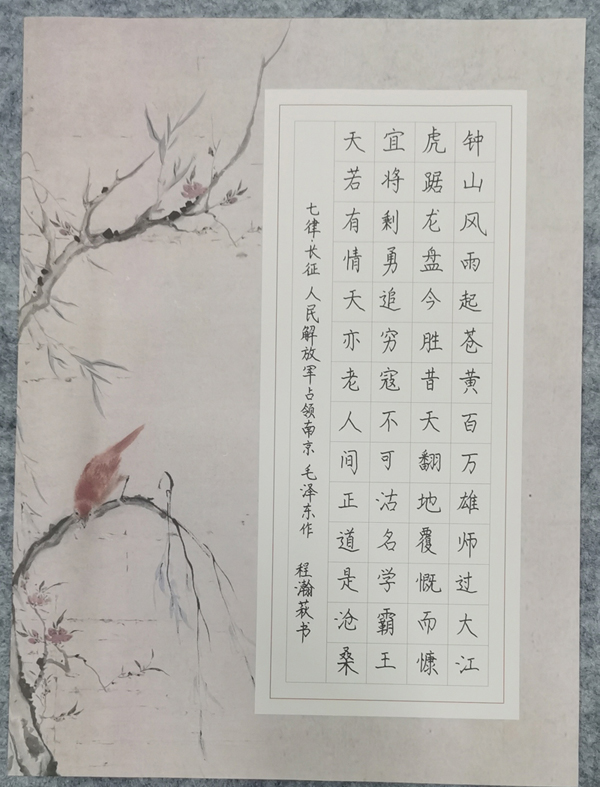 钟山风雨起苍黄百万雄师过大江
虎踞龙盘今胜昔天翻地覆慨而慷
宜将剩勇追穷寇不可沽名学霸王
天若有情天亦老人间正道是沧桑
七律·长征 人民解放军占领南京 毛泽东作
程瀚荻书